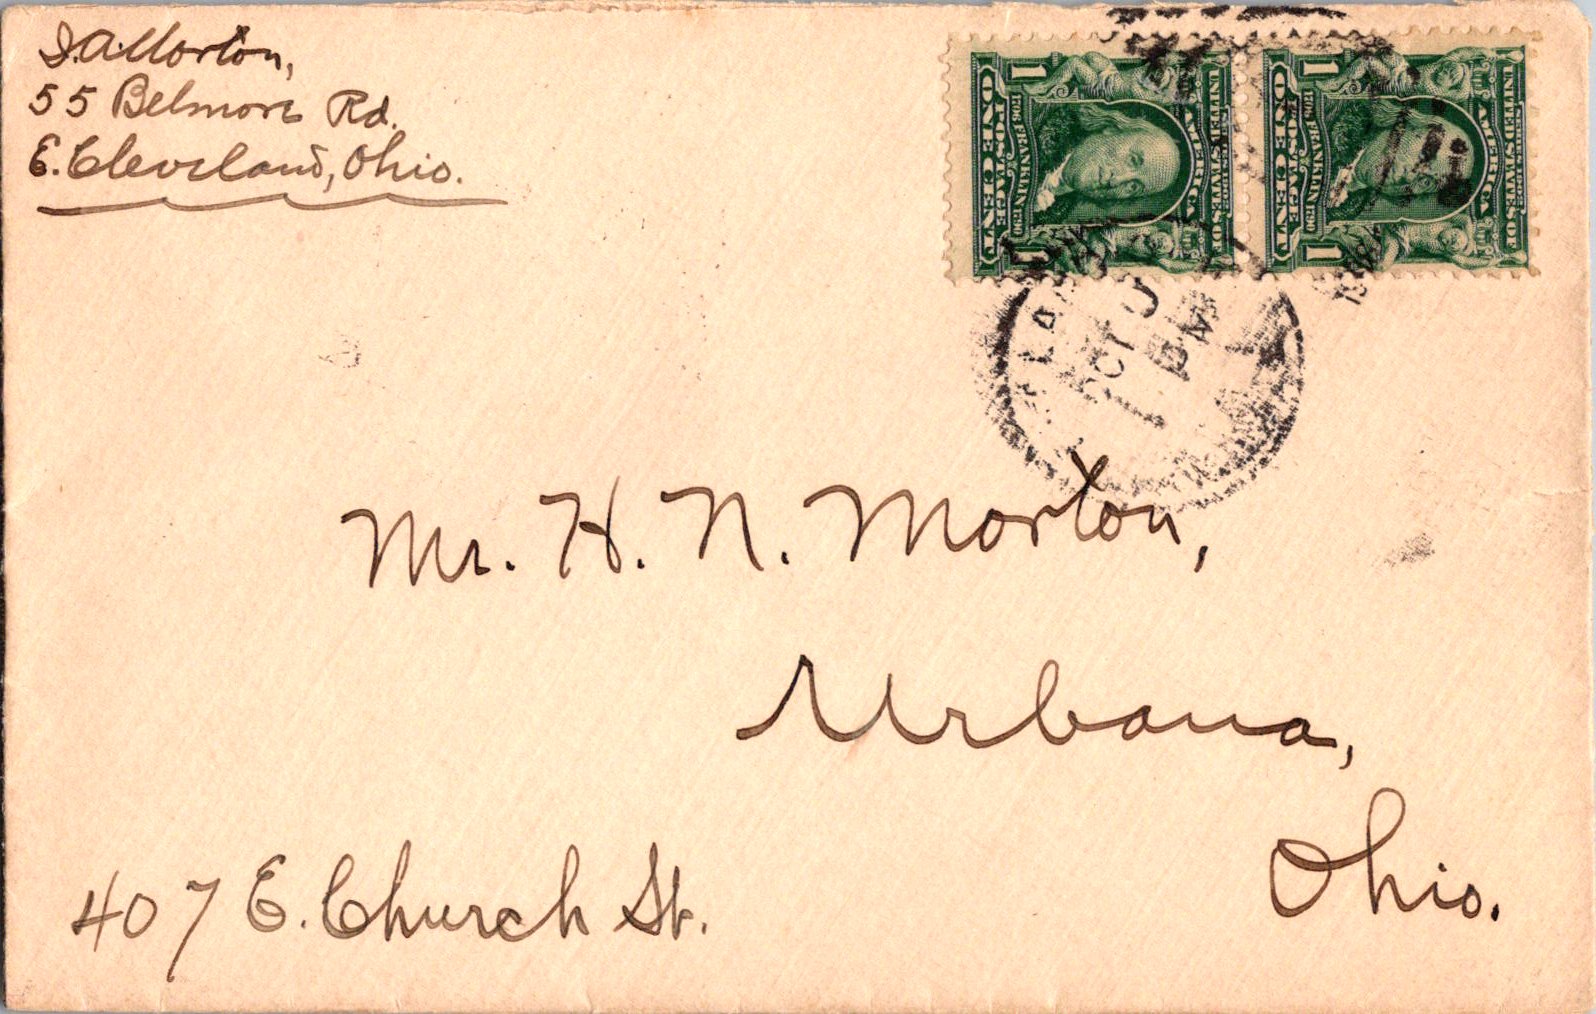 S. A. Morton,
55 Belmore Rd.
E. Cleveland, Ohio.
SERIES 1902
UNITED STATES OF
AMERICA
1706 FRANKLIN 1790
POSTAGE
1 ONE CENT 1
SERIES 1902
UNITED STATES OF
AMERICA
1706 FRANKLIN 1790
POSTAGE
1 ONE CENT 1
OCT
PM
Mr. H. N. Morton,
Urbana,
Ohio.
407 E. Church St.